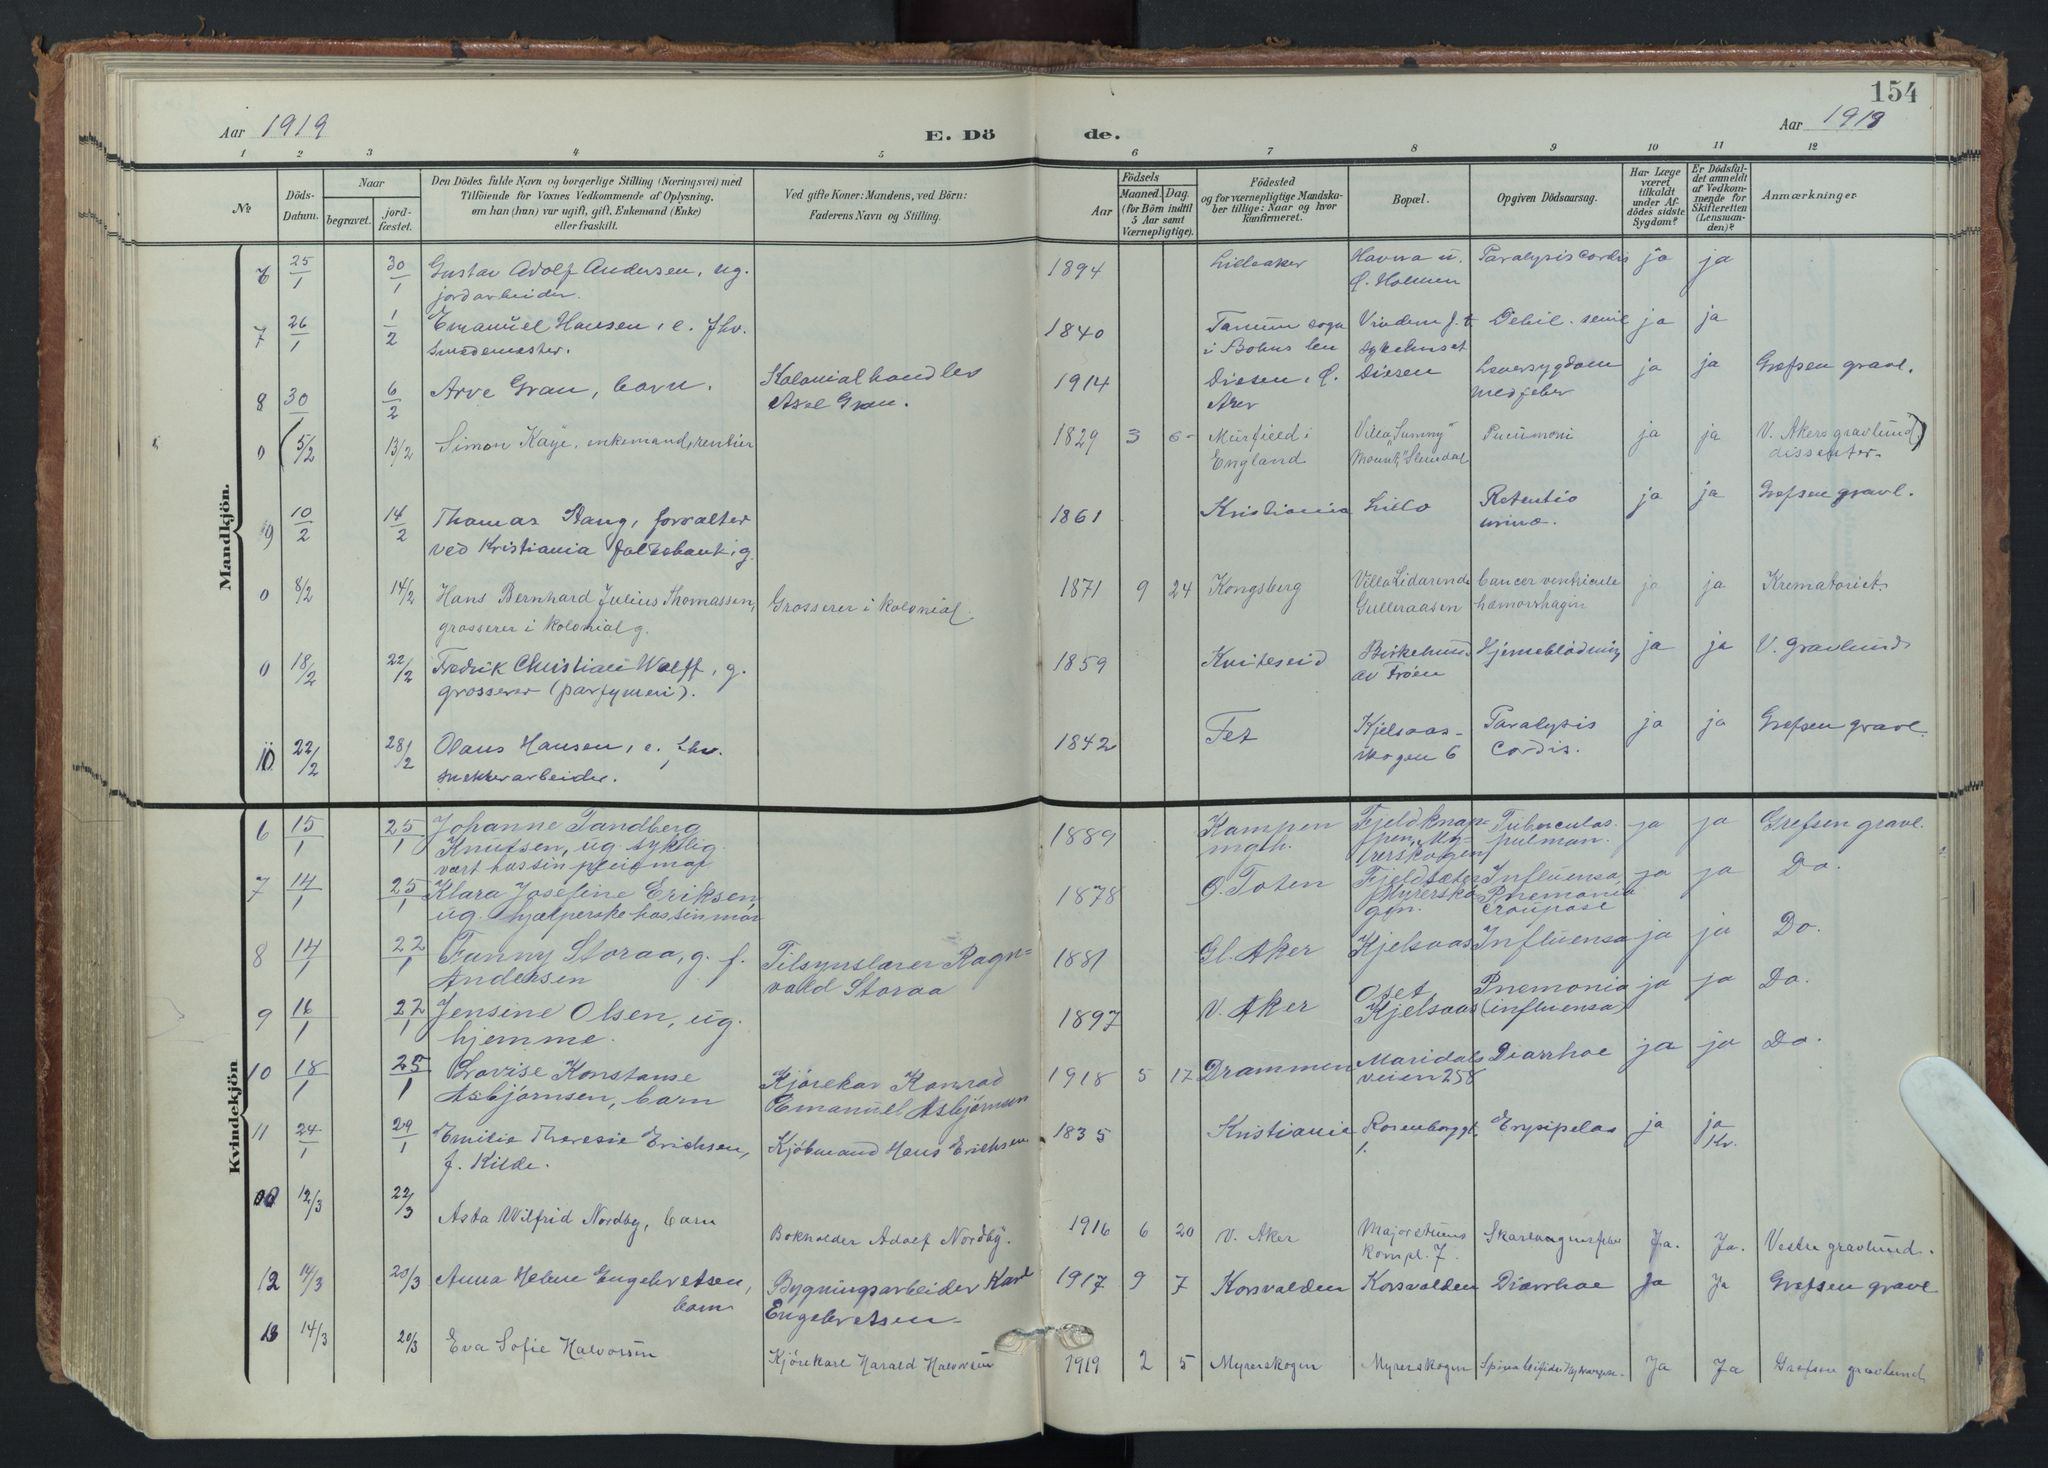 154
Aar 1919
E. Dö de.
Aar 1919
1 2 3 4 5 6 7 8 9 10 11 12
No
Döds-
Datum.
Naar
begravet.
jord-
fæstet.
Den Dödes fulde Navn og borgerlige Stilling (Næringsvei) med
Tilföiende for Voxnes Vedkommende af Oplysning.
om han (hun) var ugift, gift, Enkemand (Enke)
eller fraskilt.
Ved gifte Koner: Mandens, ved Börn:
Faderens Navn og Stilling.
Födsels
Aar
Maaned. Dag.
(for Börn indtil
5 Aar samt
Værnepligtige).
Födested
og for værnepligtige Mandska-
ber tillige: Naar og hvor
konfirmeret.
Bopæl.
Opgiven Dödsaarsag.
Har Læge
været
tilkaldt
under Af-
dödes sidste
Sygdom?
Er Dödsfal-
det anmeldt
af Vedkom-
mende for
Skifteretten
(Lensman-
den)?
Anmærkninger
Mandkjön.
6 25/1 30/1 Gustav Adolf Andersen, ug. 1894 Lilleaker Havna u. Paralysis cordis ja ja
jordarbeider. Ø. Holmen
7 26/1 1/2 Emanuel Hansen, e. fhv. 1840 Tanum sogn Vindern f. t. Debil. senil ja ja
smedemester. i Bohus len sykehuset
8 30/1 6/2 Arve Gran, barn. Kolonialhandler 1914 Disen, Ø. Disen Leversygdom ja ja Grefsen gravl.
Axel Gran. Aker med feber
0 (5/2 13/2 Simon Kaye, enkemand, rentier 1829 3 6 Murfield i Villa "Sunny Pneumoni ja ja V. Akers gravlund)
England Mount," Slemdal dissenter.
9 10/2 14/2 Thomas Stang, forvalter 1861 Kristiania Lillo Retentio ja ja Grefsen gravl.
ved Kristiania folkebank, g. urinæ.
0 8/2 14/2 Hans Bernhard Julius Thomassen, Grosserer i kolonial. 1871 9 24 Kongsberg Villa Lidarende Cancer ventricule ja ja Krematoriet.
grosserer i kolonial g. Gulleraasen hæmorrhagin
0 18/2 22/2 Fredrik Christian Wolff, g. 1859 Kviteseid Birkelund Hjerneblødning ja ja V. gravlund
grosserer (parfymeri). av Frøen
10 22/2 28/2 Olaus Hansen, e. fhv. 1842 Fet Kjelsaas- Paralysis ja ja Grefsen gravl.
snekkerarbeider. skogen 6 cordis.
Kvindekjön
6 15/1 25/1 Johanne Tandberg 1889 Kampen Fjeldknap- Tuberculos. ja ja Grefsen gravl.
Knutsen, ug. syklig pen, My- pulman.
vært hos sin pleiemor rerskogen
7 14/1 25/1 Klara Josefine Eriksen, 1878 Ø. Toten Fjeldsæter Influensa ja ja Do.
ug. hjælperske hos sin mor Myrersko- Pnemonia
gen. croupose
8 14/1 22/1 Fanny Storaa, g. f. Tilsynslærer Ragn- 1881 Gl. Aker Kjelsaas Influensa ja ja Do.
Andersen vald Storaa
9 16/1 22/1 Jensine Olsen, ug. 1897 V. Aker Oset Pnemonia ja ja Do.
hjemme. Kjelsaas (influensa)
10 18/1 25/1 Lovise Konstanse Kjørekar Konrad 1918 5 17 Drammen Maridals- Diarrhoe ja ja Do.
Asbjørnsen, barn Emanuel Asbjørnsen veien 258
11 24/1 29/1 Emilie Theresie Erichsen, Kjøbmand Hans Erichsen 1835 Kristiania Rosenborggt. Erysipelas ja ja
f. Kilde. 1. Kr.
12/3 22/3 Asta Wilfrid Nordby, barn Bokholder Adolf Nordby. 1916 6 20 V. Aker Majorstuens Ja. Ja. Vestre gravlund.
kompl. 7.
12 14/3 20/3 Anna Helene Engebretsen, Bygningsarbeider Karl 1917 9 7 Korsvalden Korsvalden Diarrhoe ja ja Grefsen gravl
barn Engebretsen
13 14/3 20/3 Eva Sofie Halvorsen Kjørekarl Harald Halvorsen 1919 2 5 Myrerskogen Myrerskogen Spina bifida Ja Ja Grefsen gravlund